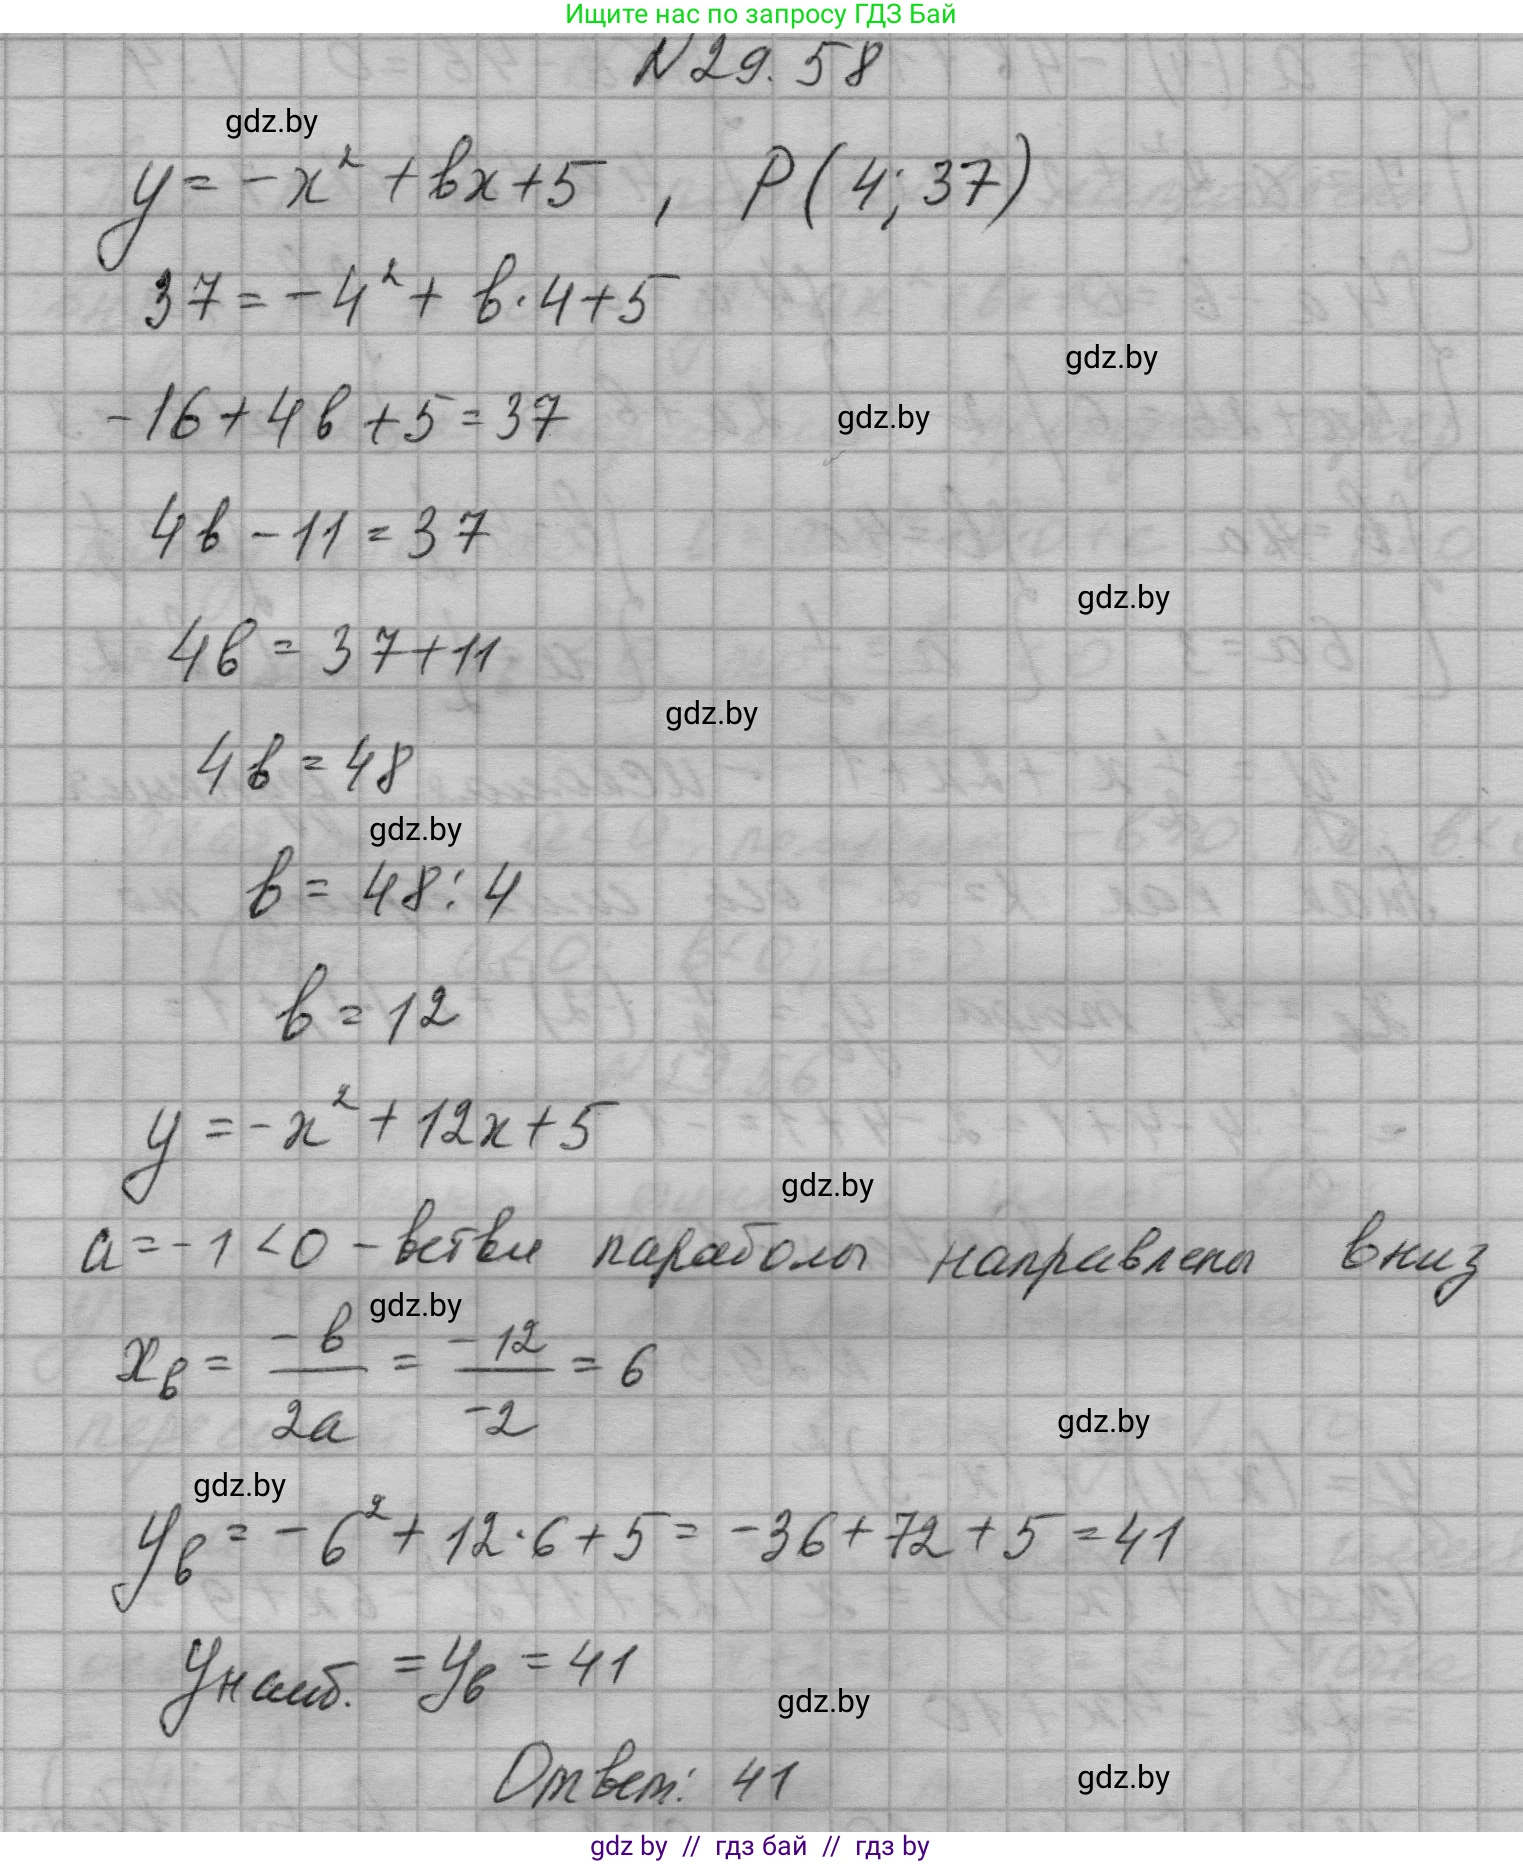 Ищите нас по запросу ГДЗ Бай
№29.58
gdz.by
y = -x² + bx + 5 , P(4; 37)
37 = -4² + b·4 + 5
gdz.by
-16 + 4b + 5 = 37
gdz.by
4b - 11 = 37
gdz.by
4b = 37 + 11
gdz.by
4b = 48
gdz.by
b = 48 : 4
b = 12
y = -x² + 12x + 5
gdz.by
a = -1 < 0 - ветви параболы направлены вниз
gdz.by
xв = -b/2a = -12/-2 = 6
gdz.by
gdz.by
yв = -6² + 12·6 + 5 = -36 + 72 + 5 = 41
yнаиб. = yв = 41
gdz.by
Ответ: 41
gdz.by
gdz by // гдз бай // гдз by